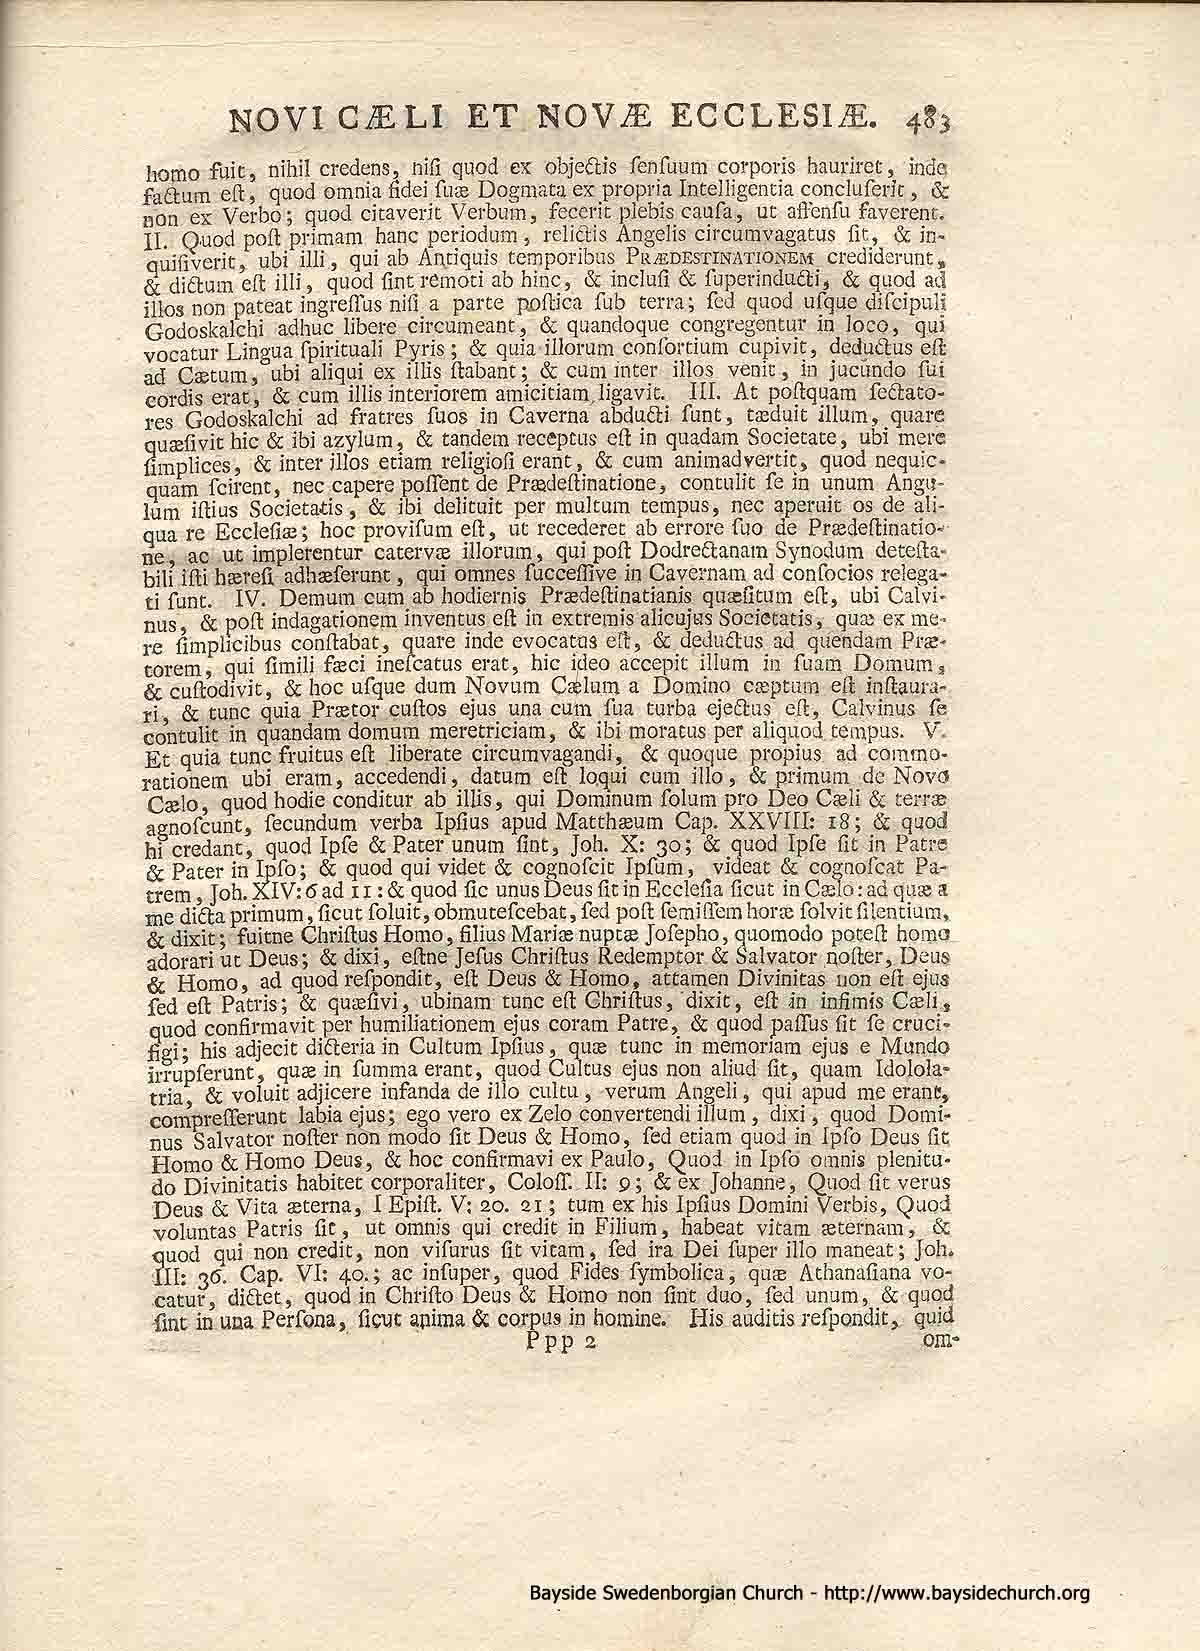 NOVI CÆLI ET NOVÆ ECCLESIÆ. 483
homo fuit, nihil credens, niſi quod ex objectis ſenſuum corporis hauriret, inde
factum eſt, quod omnia fidei ſuæ Dogmata ex propria Intelligentia concluſerit, &
non ex Verbo; quod citaverit Verbum, fecerit plebis cauſa, ut aſſenſu faverent.
II. Quod poſt primam hanc periodum, relictis Angelis circumvagatus ſit, & in-
quiſiverit, ubi illi, qui ab Antiquis temporibus PRÆDESTINATIONEM crediderunt,
& dictum eſt illi, quod ſint remoti ab hinc, & incluſi & ſuperinducti, & quod ad
illos non pateat ingreſſus niſi a parte poſtica ſub terra; ſed quod uſque diſcipuli
Godoskalchi adhuc libere circumeant, & quandoque congregentur in loco, qui
vocatur Lingua ſpirituali Pyris; & quia illorum conſortium cupivit, deductus eſt
ad Cætum, ubi aliqui ex illis ſtabant; & cum inter illos venit, in jucundo ſui
cordis erat, & cum illis interiorem amicitiam ligavit. III. At poſtquam ſectato-
res Godoskalchi ad fratres ſuos in Caverna abducti ſunt, tæduit illum, quare
quæſivit hic & ibi azylum, & tandem receptus eſt in quadam Societate, ubi mere
ſimplices, & inter illos etiam religioſi erant, & cum animadvertit, quod nequic-
quam ſcirent, nec capere poſſent de Prædeſtinatione, contulit ſe in unum Angu-
lum iſtius Societatis, & ibi delituit per multum tempus, nec aperuit os de ali-
qua re Eccleſiæ; hoc proviſum eſt, ut recederet ab errore ſuo de Prædeſtinatio-
ne, ac ut implerentur catervæ illorum, qui poſt Dodrectanam Synodum deteſta-
bili iſti hæreſi adhæſerunt, qui omnes ſucceſſive in Cavernam ad conſocios relega-
ti ſunt. IV. Demum cum ab hodiernis Prædeſtinatianis quæſitum eſt, ubi Calvi-
nus, & poſt indagationem inventus eſt in extremis alicujus Societatis, quæ ex me-
re ſimplicibus conſtabat, quare inde evocatus eſt, & deductus ad quendam Præ-
torem, qui ſimili fæci ineſcatus erat, hic ideo accepit illum in ſuam Domum,
& cuſtodivit, & hoc uſque dum Novum Cælum a Domino cæptum eſt inſtaura-
ri, & tunc quia Prætor cuſtos ejus una cum ſua turba ejectus eſt, Calvinus ſe
contulit in quandam domum meretriciam, & ibi moratus per aliquod tempus. V.
Et quia tunc fruitus eſt liberate circumvagandi, & quoque propius ad commo-
rationem ubi eram, accedendi, datum eſt loqui cum illo, & primum de Novo
Cælo, quod hodie conditur ab illis, qui Dominum ſolum pro Deo Cæli & terræ
agnoſcunt, ſecundum verba Ipſius apud Matthæum Cap. XXVIII: 18; & quod
hi credant, quod Ipſe & Pater unum ſint, Joh. X: 30; & quod Ipſe ſit in Patre
& Pater in Ipſo; & quod qui videt & cognoſcit Ipſum, videat & cognoſcat Pa-
trem, Joh. XIV: 6 ad 11: & quod ſic unus Deus ſit in Eccleſia ſicut in Cælo: ad quæ a
me dicta primum, ſicut ſoluit, obmuteſcebat, ſed poſt ſemiſſem horæ ſolvit ſilentium,
& dixit; fuitne Chriſtus Homo, filius Mariæ nuptæ Joſepho, quomodo poteſt homo
adorari ut Deus; & dixi, eſtne Jeſus Chriſtus Redemptor & Salvator noſter, Deus
& Homo, ad quod reſpondit, eſt Deus & Homo, attamen Divinitas non eſt ejus
ſed eſt Patris; & quæſivi, ubinam tunc eſt Chriſtus, dixit, eſt in infimis Cæli,
quod confirmavit per humiliationem ejus coram Patre, & quod paſſus ſit ſe cruci-
figi; his adjecit dicteria in Cultum Ipſius, quæ tunc in memoriam ejus e Mundo
irrupſerunt, quæ in ſumma erant, quod Cultus ejus non aliud ſit, quam Idolola-
tria, & voluit adjicere infanda de illo cultu, verum Angeli, qui apud me erant,
compreſſerunt labia ejus; ego vero ex Zelo convertendi illum, dixi, quod Domi-
nus Salvator noſter non modo ſit Deus & Homo, ſed etiam quod in Ipſo Deus ſit
Homo & Homo Deus, & hoc confirmavi ex Paulo, Quod in Ipſo omnis plenitu-
do Divinitatis habitet corporaliter, Coloſſ. II: 9; & ex Johanne, Quod ſit verus
Deus & Vita æterna, I Epiſt. V: 20. 21; tum ex his Ipſius Domini Verbis, Quod
voluntas Patris ſit, ut omnis qui credit in Filium, habeat vitam æternam, &
quod qui non credit, non viſurus ſit vitam, ſed ira Dei ſuper illo maneat; Joh.
III: 36. Cap. VI: 40.; ac inſuper, quod Fides ſymbolica, quæ Athanaſiana vo-
catur, dictet, quod in Chriſto Deus & Homo non ſint duo, ſed unum, & quod
ſint in una Perſona, ſicut anima & corpus in homine. His auditis reſpondit, quid
Ppp 2 om-
Bayside Swedenborgian Church - http://www.baysidechurch.org